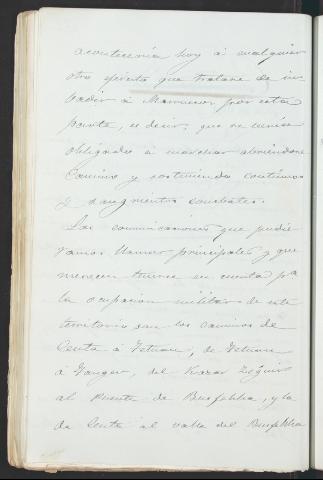 acontecería hoy á cualquier
otro ejército que tratase de in
vadir á Marruecos por esta
parte, es decir, que se vería
obligado á marchar abriéndose
camino y sosteniendo continuos
y sangrientos combates.
Las comunicaciones que pudié
ramos llamar principales y que
merecen tenerse en cuenta pª
la ocupacion militar de este
territorio son los caminos de
Ceuta á Tetuan, de Tetuan
á Tanger, del Kazar Zeguir
al Puente de Busfekha, y la
de Ceuta al valle del Busfekha